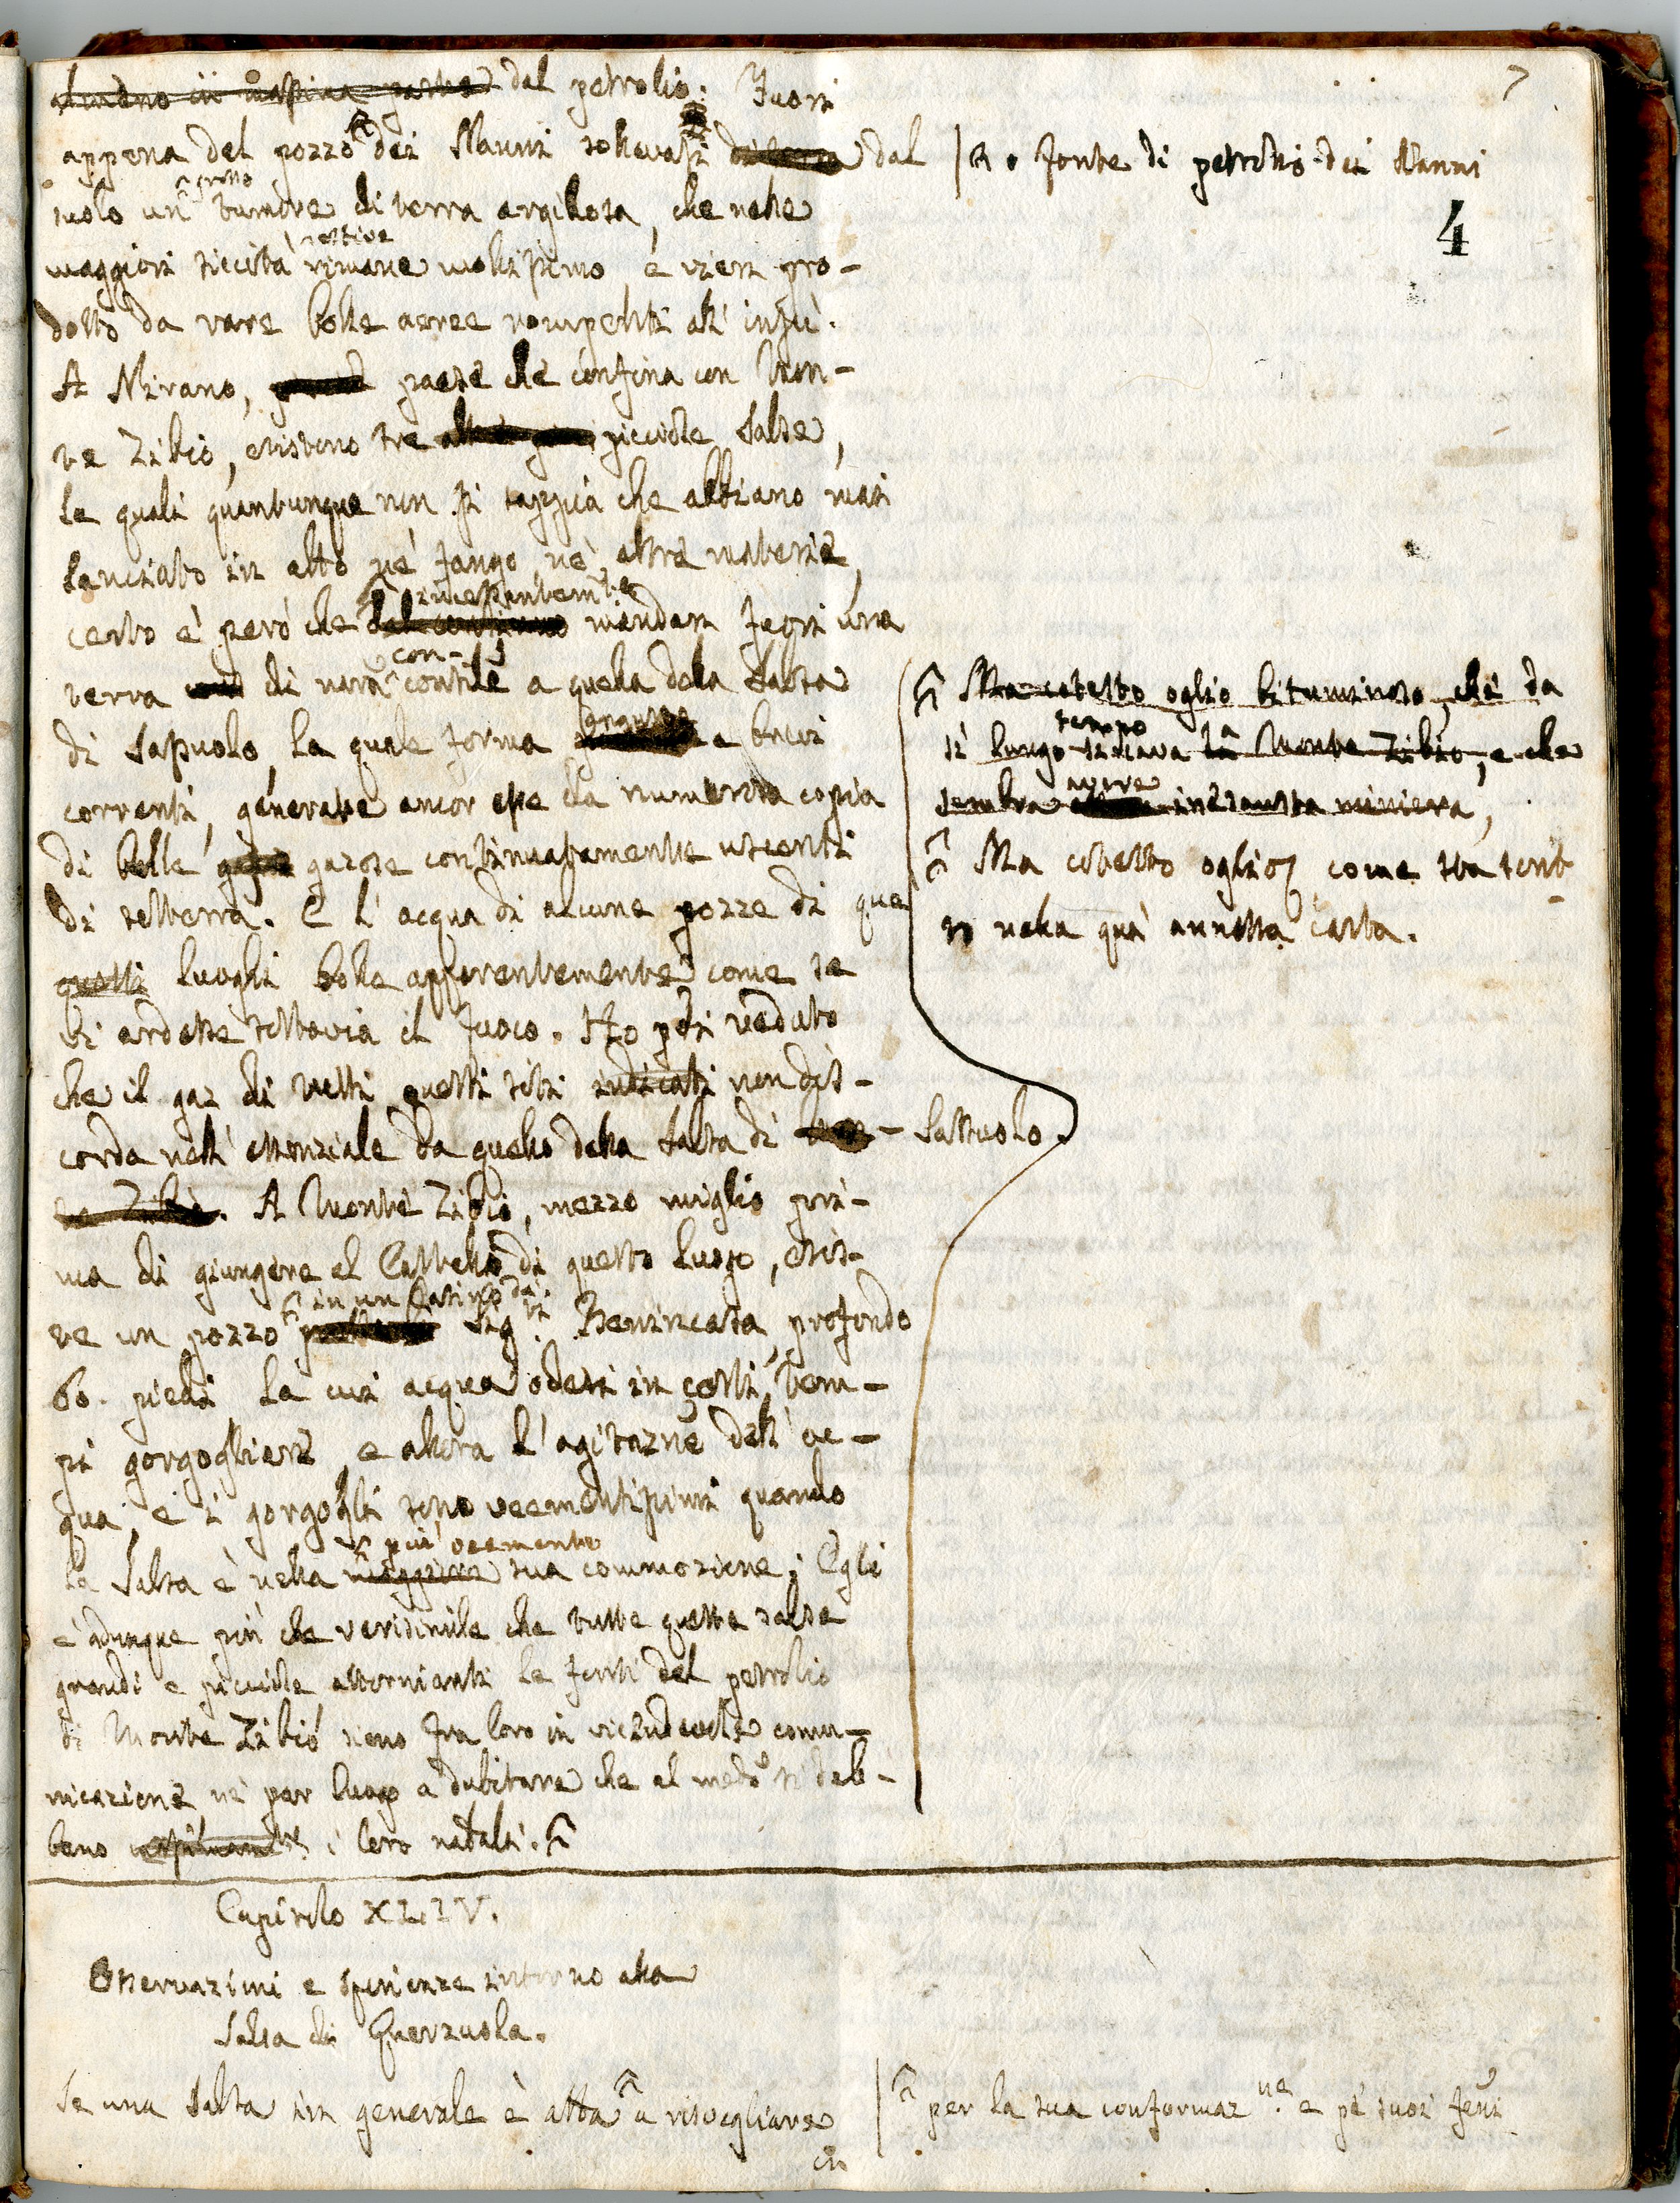 7
4
almeno in massima parte dal petrolio. Fuori
appena del pozzo dei Nanni sollevasi dal
o fonte di petrolio dei Nanni
grosso
suolo un tumore di terra argillosa, che nelle
estive
maggiori siccità rimane mollissimo, e vien pro-
dotto da varie bolle aeree rompenti all' insù.
A Nirano, paese che confina con Mon-
te Zibio, esistono tre picciole Salse,
le quali quantunque non si sappia che abbiano mai
lanciato in alto nè fango, nè altre materie,
incessantem.te
certo è però che del continuo mandan fuori una
con-
terra di natura consimile a quella della Salsa
angusta
di Sassuolo, la quale forma e brevi
correnti, generate ancor esse da numerosa copia
di bolle gazose continuatamente uscenti
di sotterra. E l' acqua di alcune pozze di que
questi luoghi bolle apparentemente come se
vi ardesse sottovia il fuoco. Ho poi veduto
che il gaz di tutti questi siti indicati non dis-
corda nell' essenziale da quello della Salsa di - Sassuolo.
te Zibio. A Monte Zibio, mezzo miglio pri-
ma di giungere al Castello di questo luogo, esis-
in un Casino da
te un pozzo Sig.ri Benincasa, profondo
60. piedi la cui acqua odesi in certi tem-
pi gorgogliare, e allora l' agitazne dell' ac-
qua, e i gorgogli sono veementissimi quando
più veemente
la Salsa è nella maggiore sua commozione. Egli
è adunque più che verisimile che tutte queste salse
grandi e picciole attornianti le fonti del petrolio
di Monte Zibio sieno fra loro in vicendevole comu-
nicazione, nè per luogo a dubitare che al medo si deb-
bano i loro natali.
Ma cotesto oglio bituminoso, che da
tempo
sì lungo stillava a Monte Zibio, e che
avere
sembra inesausta miniera,
Ma cotesto oglio, come sta scrit
to nella quà annessa carta.
Capitolo XLIV.
Osservazioni e sperienze intorno alla
Salsa di Querzuola.
Se una Salsa in generale è atta a risvegliare
per la sua conformaz.ne e pe' suoi feni
in